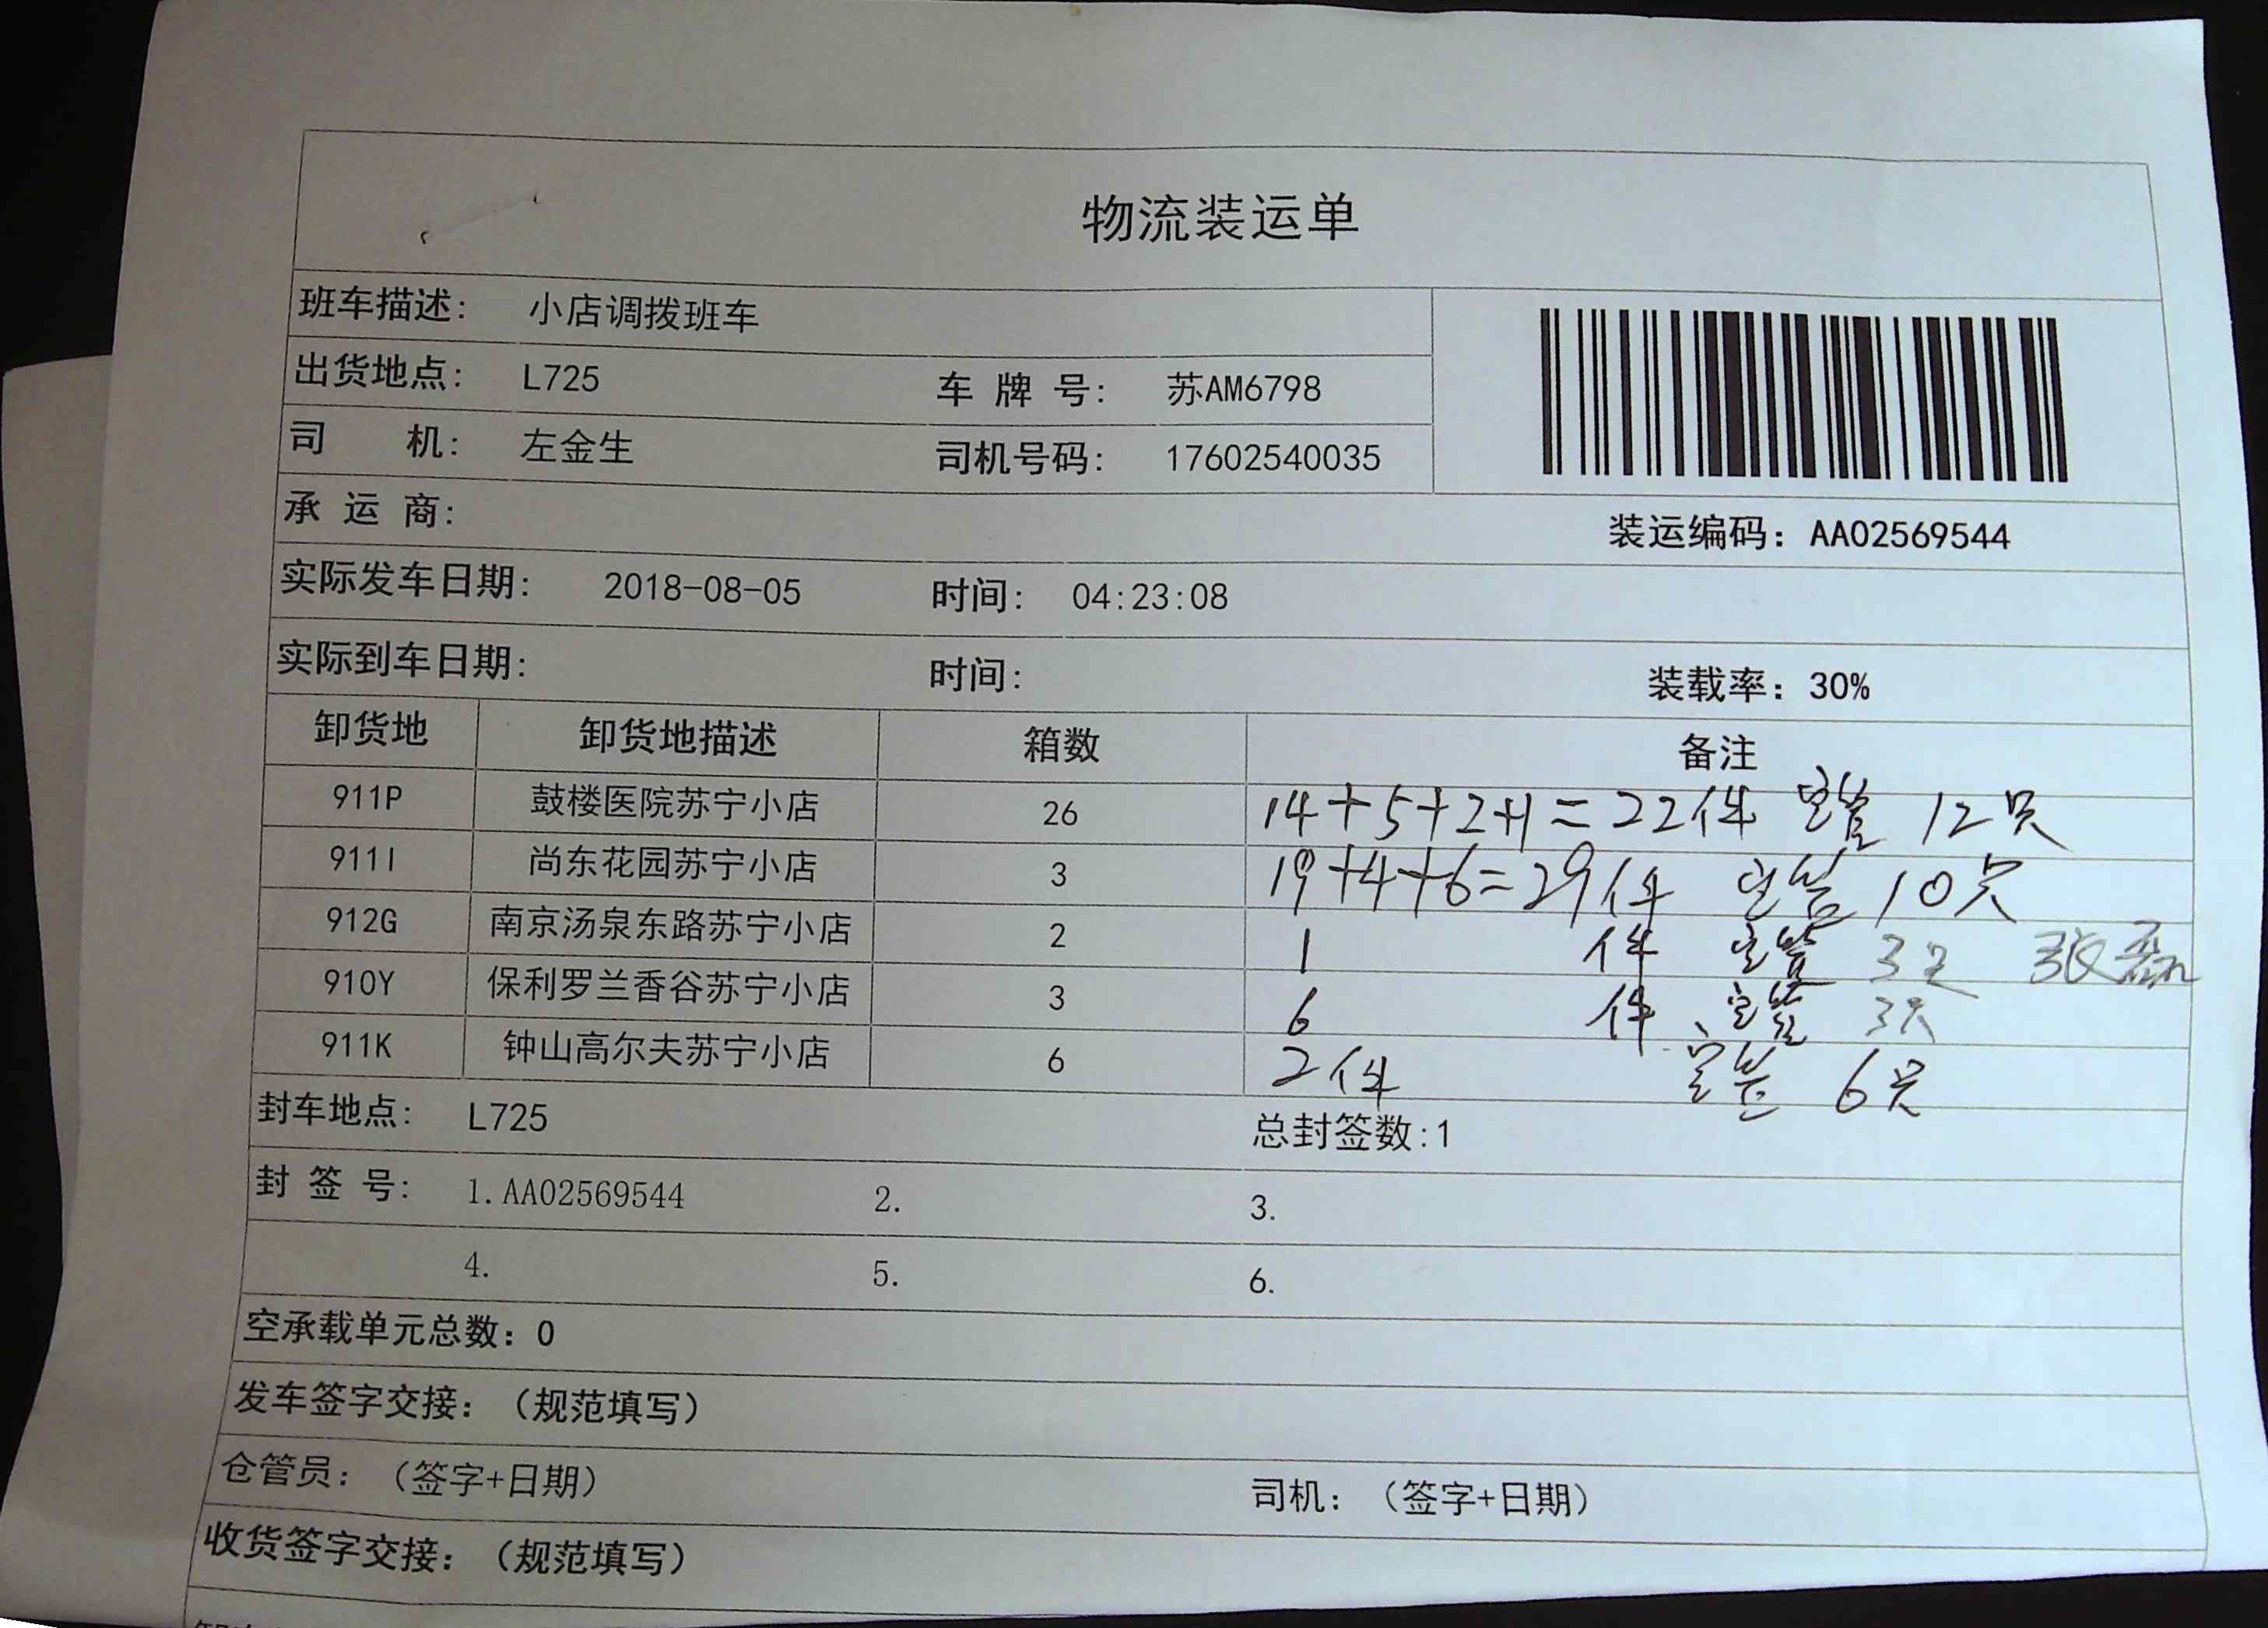 物流装运单
班车描述: 小店调拨班车
出货地点: L725 车 牌 号: 苏AM6798
司 机: 左金生 司机号码: 17602540035
承 运 商:
装运编码: AA02569544
实际发车日期: 2018-08-05 时间: 04:23:08
实际到车日期: 时间: 装载率: 30%
卸货地 卸货地描述 箱数 备注
911P 鼓楼医院苏宁小店 26 14+5+2+1=22件 12只
911I 尚东花园苏宁小店 3 19+4+6=29件 10只
912G 南京汤泉东路苏宁小店 2 1 件 3只
910Y 保利罗兰香谷苏宁小店 3 6 件 3只
911K 钟山高尔夫苏宁小店 6 2件 6只
封车地点: L725 总封签数:1
封 签 号: 1.AA02569544 2. 3.
4. 5. 6.
空承载单元总数: 0
发车签字交接: (规范填写)
仓管员: (签字+日期) 司机: (签字+日期)
收货签字交接: (规范填写)